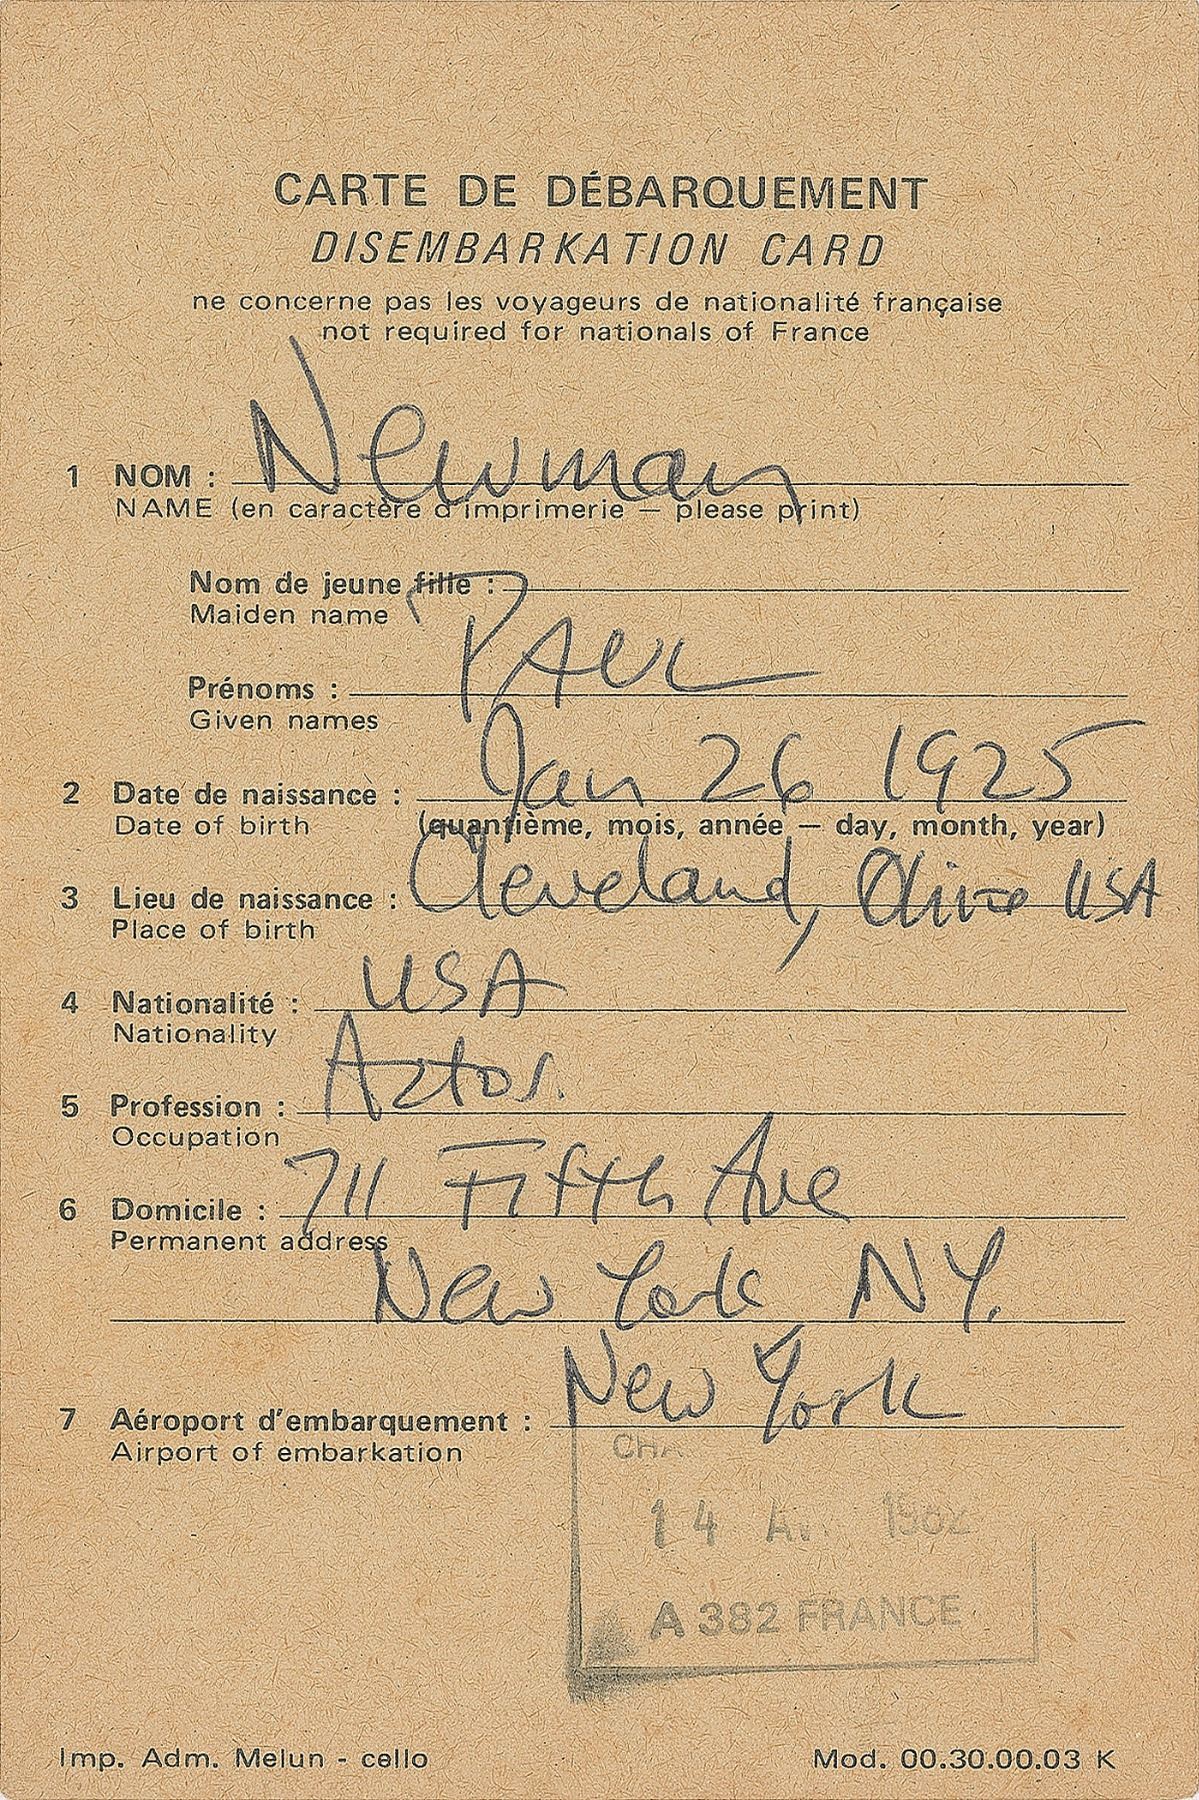 CARTE DE DÉBARQUEMENT
DISEMBARKATION CARD
ne concerne pas les voyageurs de nationalité française
not required for nationals of France
1 NOM : Newman
NAME (en caractère d'imprimerie — please print)
Nom de jeune fille :
Maiden name
Prénoms : PAUL
Given names
2 Date de naissance : Jan 26 1925
Date of birth (quantième, mois, année — day, month, year)
3 Lieu de naissance : Cleveland, USA
Place of birth
4 Nationalité : USA
Nationality
5 Profession : Actor.
Occupation
6 Domicile : 711 Fifth Ave
Permanent address
New York NY.
7 Aéroport d'embarquement : New York
Airport of embarkation
14
A 382 FRANCE
Imp. Adm. Melun - cello Mod. 00.30.00.03 K